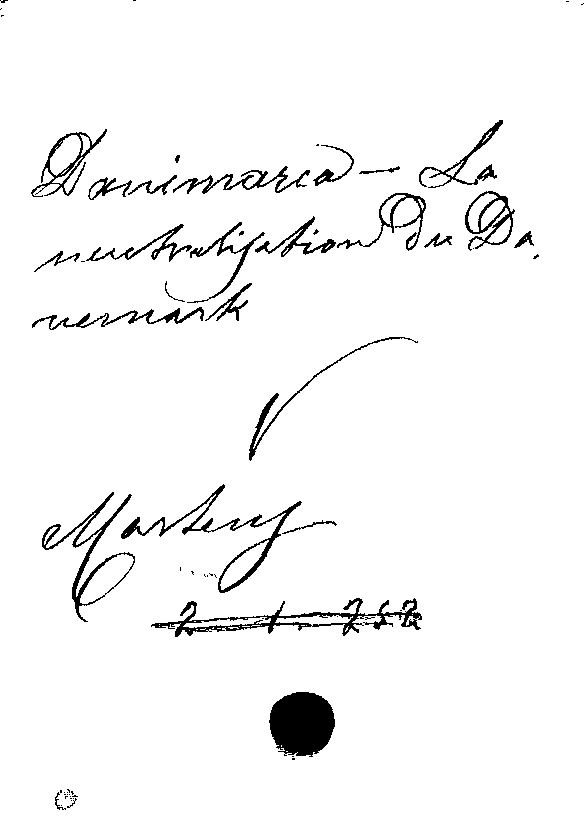 Danimarca – La
neutralisation du Da,
nemark
V
Martens
2 1. 252